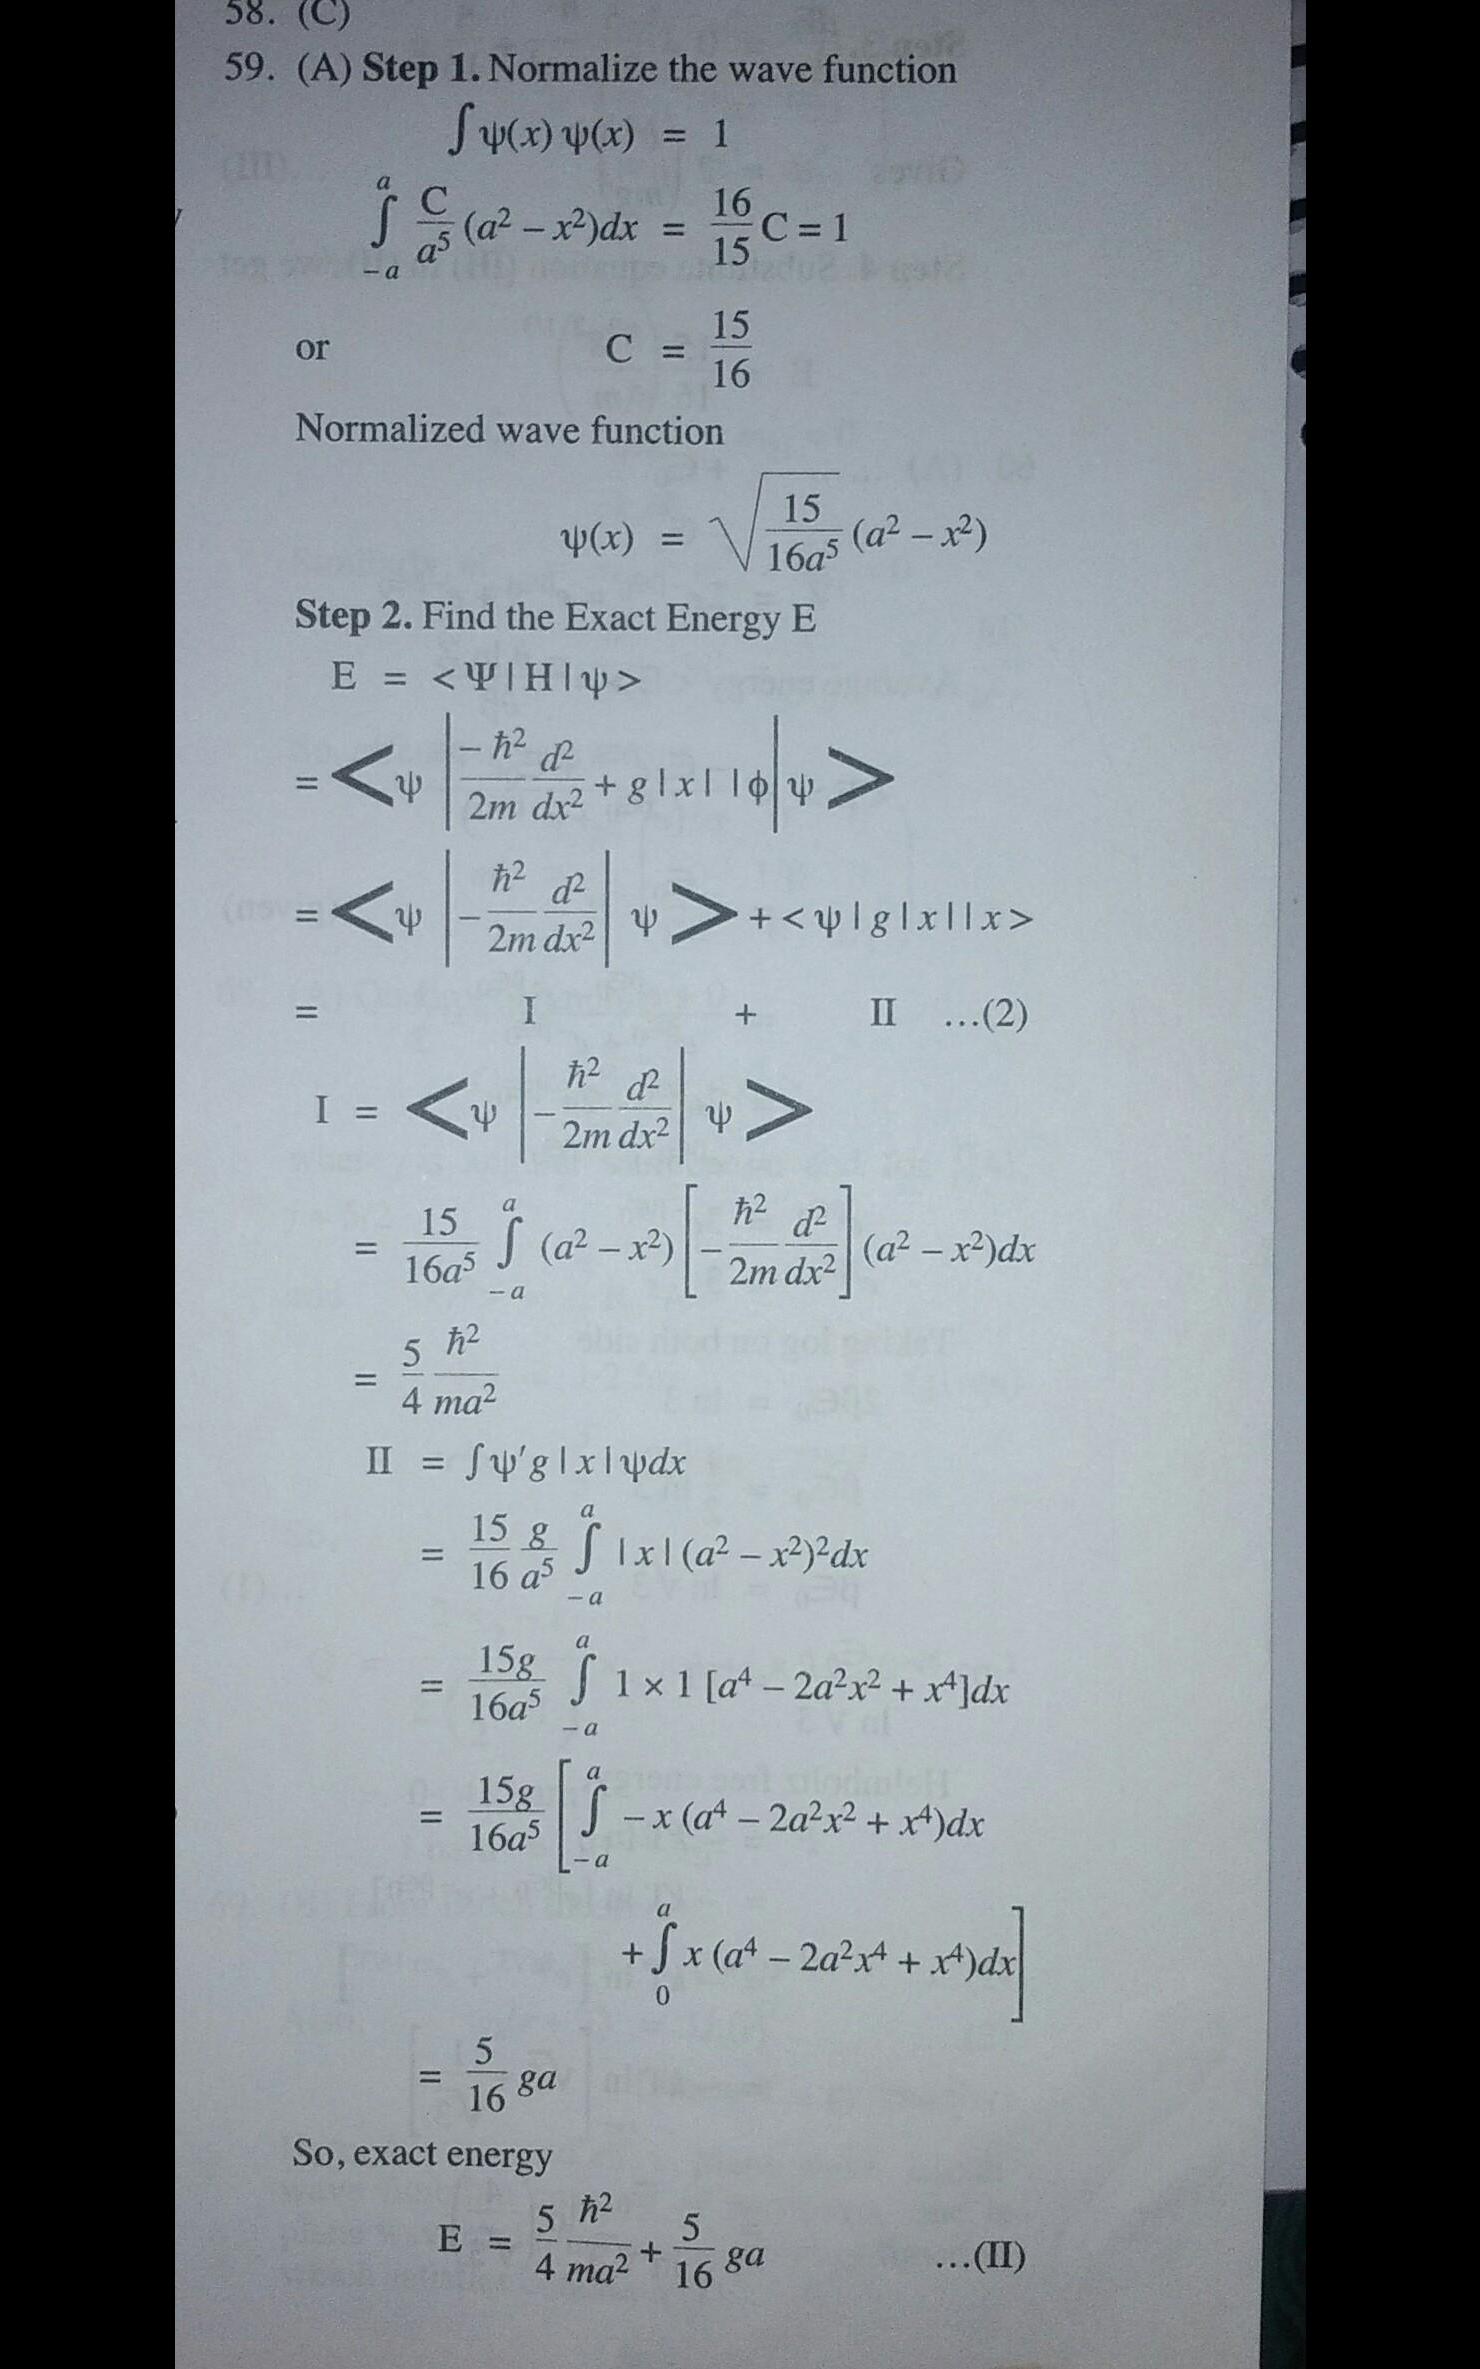 58. (C)
59. (A) Step 1. Normalize the wave function
∫ψ(x) ψ(x) = 1
∫_{-a}^{a} C/a⁵ (a² – x²)dx = 16/15 C = 1
or C = 15/16
Normalized wave function
ψ(x) = √(15/16a⁵) (a² – x²)
Step 2. Find the Exact Energy E
E = <Ψ | H | ψ>
= <ψ | –ħ²/2m d²/dx² + g | x | | ϕ | ψ>
= <ψ | –ħ²/2m d²/dx² | ψ> + <ψ | g | x | | x>
= I + II ...(2)
I = <ψ | –ħ²/2m d²/dx² | ψ>
= 15/16a⁵ ∫_{-a}^{a} (a² – x²) [–ħ²/2m d²/dx²] (a² – x²)dx
= 5/4 ħ²/ma²
II = ∫ψ'g | x | ψdx
= 15/16 g/a⁵ ∫_{-a}^{a} | x | (a² – x²)²dx
= 15g/16a⁵ ∫_{-a}^{a} 1 × 1 [a⁴ – 2a²x² + x⁴]dx
= 15g/16a⁵ [∫_{-a}^{a} – x (a⁴ – 2a²x² + x⁴)dx
+ ∫_{0}^{a} x (a⁴ – 2a²x⁴ + x⁴)dx]
= 5/16 ga
So, exact energy
E = 5/4 ħ²/ma² + 5/16 ga ...(II)